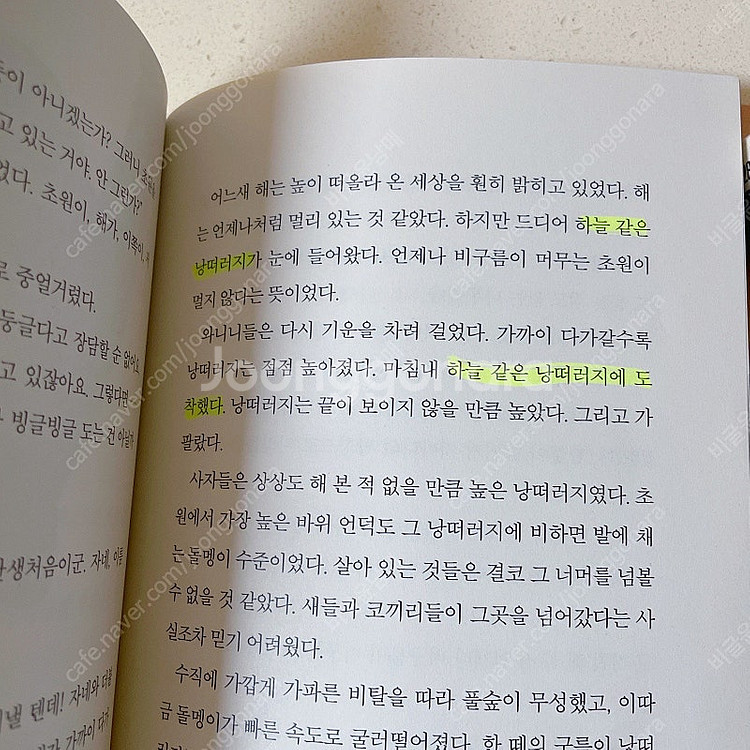 등이 아니겠는가? 그러니
고 있는 거야. 안 그런가?
었다. 초원이, 해가, 이쪽이,
로 중얼거렸다.
둥글다고 장담할 순 없어요
고 있잖아요. 그렇다면
빙글빙글 도는 건 아닐까
난생처음이군. 자네, 이름
낼 텐데! 자네와 더불
가 가까이 다가
어느새 해는 높이 떠올라 온 세상을 훤히 밝히고 있었다. 해
는 언제나처럼 멀리 있는 것 같았다. 하지만 드디어 하늘 같은
낭떠러지가 눈에 들어왔다. 언제나 비구름이 머무는 초원이
멀지 않다는 뜻이었다.
와니니들은 다시 기운을 차려 걸었다. 가까이 다가갈수록
낭떠러지는 점점 높아졌다. 마침내 하늘 같은 낭떠러지에 도
착했다. 낭떠러지는 끝이 보이지 않을 만큼 높았다. 그리고 가
팔랐다.
사자들은 상상도 해 본 적 없을 만큼 높은 낭떠러지였다. 초
원에서 가장 높은 바위 언덕도 그 낭떠러지에 비하면 발에 채
는 돌멩이 수준이었다. 살아 있는 것들은 결코 그 너머를 넘볼
수 없을 것 같았다. 새들과 코끼리들이 그곳을 넘어갔다는 사
실조차 믿기 어려웠다.
수직에 가깝게 가파른 비탈을 따라 풀숲이 무성했고, 이따
금 돌멩이가 빠른 속도로 굴러떨어졌다. 한 떼의 구름이 낭떠
Joonggonara
cafe.naver.com/joonggonara